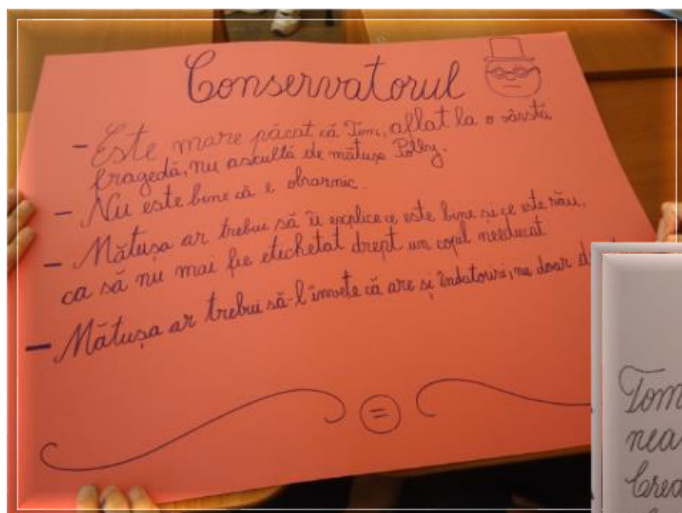 Conservatorul
- Este mare păcat că Tom, aflat la o vârstă
fragedă, nu ascultă de mătușa Polly.
- Nu este bine că e obraznic.
- Mătușa ar trebui să îi explice ce este bine și ce este rău,
ca să nu mai fie etichetat drept un copil needucat
- Mătușa ar trebui să-l învețe că are și îndatoriri, nu doar
=
Tom